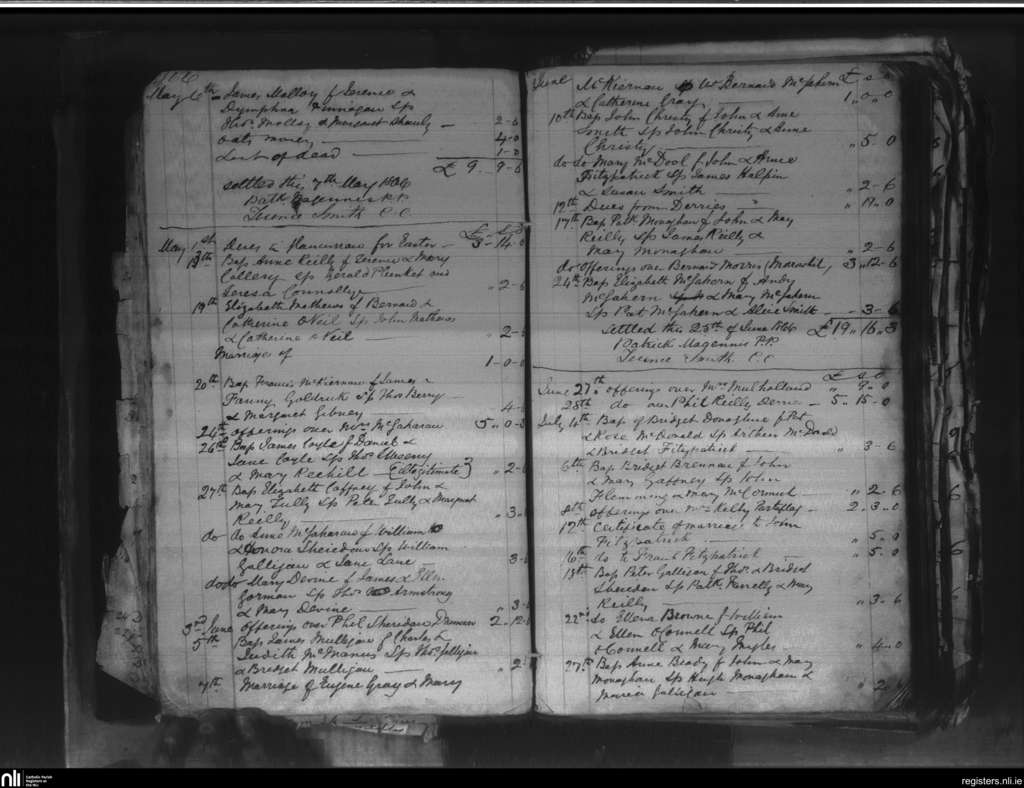 May 6th James Molloy of Terence &
Dymphna Finnigan Sp
Thos. Molloy & Margaret Shanly — 2-6
Oats money — 4-0
List of dead — 1-0
£ 9. 9-6
settled this 7th May 1866
P.P.
Terence Smith C.C.
£ s d
May 1st Dues for Easter — 3-14-0
13th Bap Anne Reilly of Terence & Mary
Sp Gerald Plunket and
Teresa Connolly — " 2-6
19th Elizabeth Mathews of Bernard &
Catherine O Neil Sp John Mathews
& Catherine Neil — " 2-6
Marriage of 1-0-0
20th Bap Francis McKiernan of James &
Fanny Goldrick Sp Thos Berry
& Margaret Gibney — 4-
24th offerings over McGaharan 5" 0-0
26th Bap James Coyle of Daniel &
Jane Coyle Sp Thos
& Mary Rechill — (illegitimate) " 2-6
27th Bap Elizabeth Caffney of John &
Mary Tully Sp Peter Tully & Margaret
Reilly — " 3-
do do Anne McGaharan of William
& Honora Sheridan Sp William
Galligan & Jane Lane 3-
do do Mary Devine of James & Ellen
Gorman Sp Thos Armstrong
& Mary Devine — " 3-
3rd June offering over Phil Sheridan 2-12-
5th Bap James Mulligan of Charles &
Judith McManus Sp Thos
& Bridget Mulligan — " 2-
7th Marriage of Eugene Gray & Mary
June McKiernan Bernard McGahern £ s d
& Catherine Gray — 1 " 0 " 0
10th Bap John Christy of John & Anne
Smith Sp John Christy & Anne
Christy — " 5-0
do do Mary McDool of John & Anne
Fitzpatrick Sp James Halpin
& Susan Smith — " 2-6
12th Dues from Derries " 0
17th Bap Patk Monaghan of John & Mary
Reilly Sp James Reilly &
Mary Monaghan — " 2-6
do offerings over Bernard Morris 3 " 12-6
24th Bap Elizabeth McGahern of Andy
McGahern & Mary McGahern
Sp Pat McGahern & Alice Smith — 3-6
Settled this 25th of June 1866 £ 19 " 16 " 3
Patrick Magennis P.P.
Terence Smith C.C
£ s d
June 27th offerings over Mrs Mulholland " 9 " 0
28th do over Phil Reilly Derrie — 5 " 15-0
July 4th Bap of Bridget Donaghue of Pat
& Rose McDonald Sp Arthur McDonald
& Bridget Fitzpatrick — " 3-6
6th Bap Bridget Brennan of John
& Mary Gaffney Sp John
Flemming & Mary McCormick — " 2-6
8th offerings over Mrs Kelly — 2-3-0
12th Certificate of marriage to John
Fitzpatrick — " 5-0
16th do to Frank Fitzpatrick — " 5-0
18th Bap Peter Galligan of Thos & Bridget
Sheridan Sp Patk Farrelly & Mary
Reilly — " 3-6
22nd do Ellena Browne of William
& Ellen OConnell Sp Phil
OConnell & Mary — " 4-0
27th Bap Anne Brady of John & Mary
Monaghan Sp Hugh Monaghan &
Maria Galligan — " 2-6
nli
Catholic Parish
Registers at
the NLI
registers.nli.ie